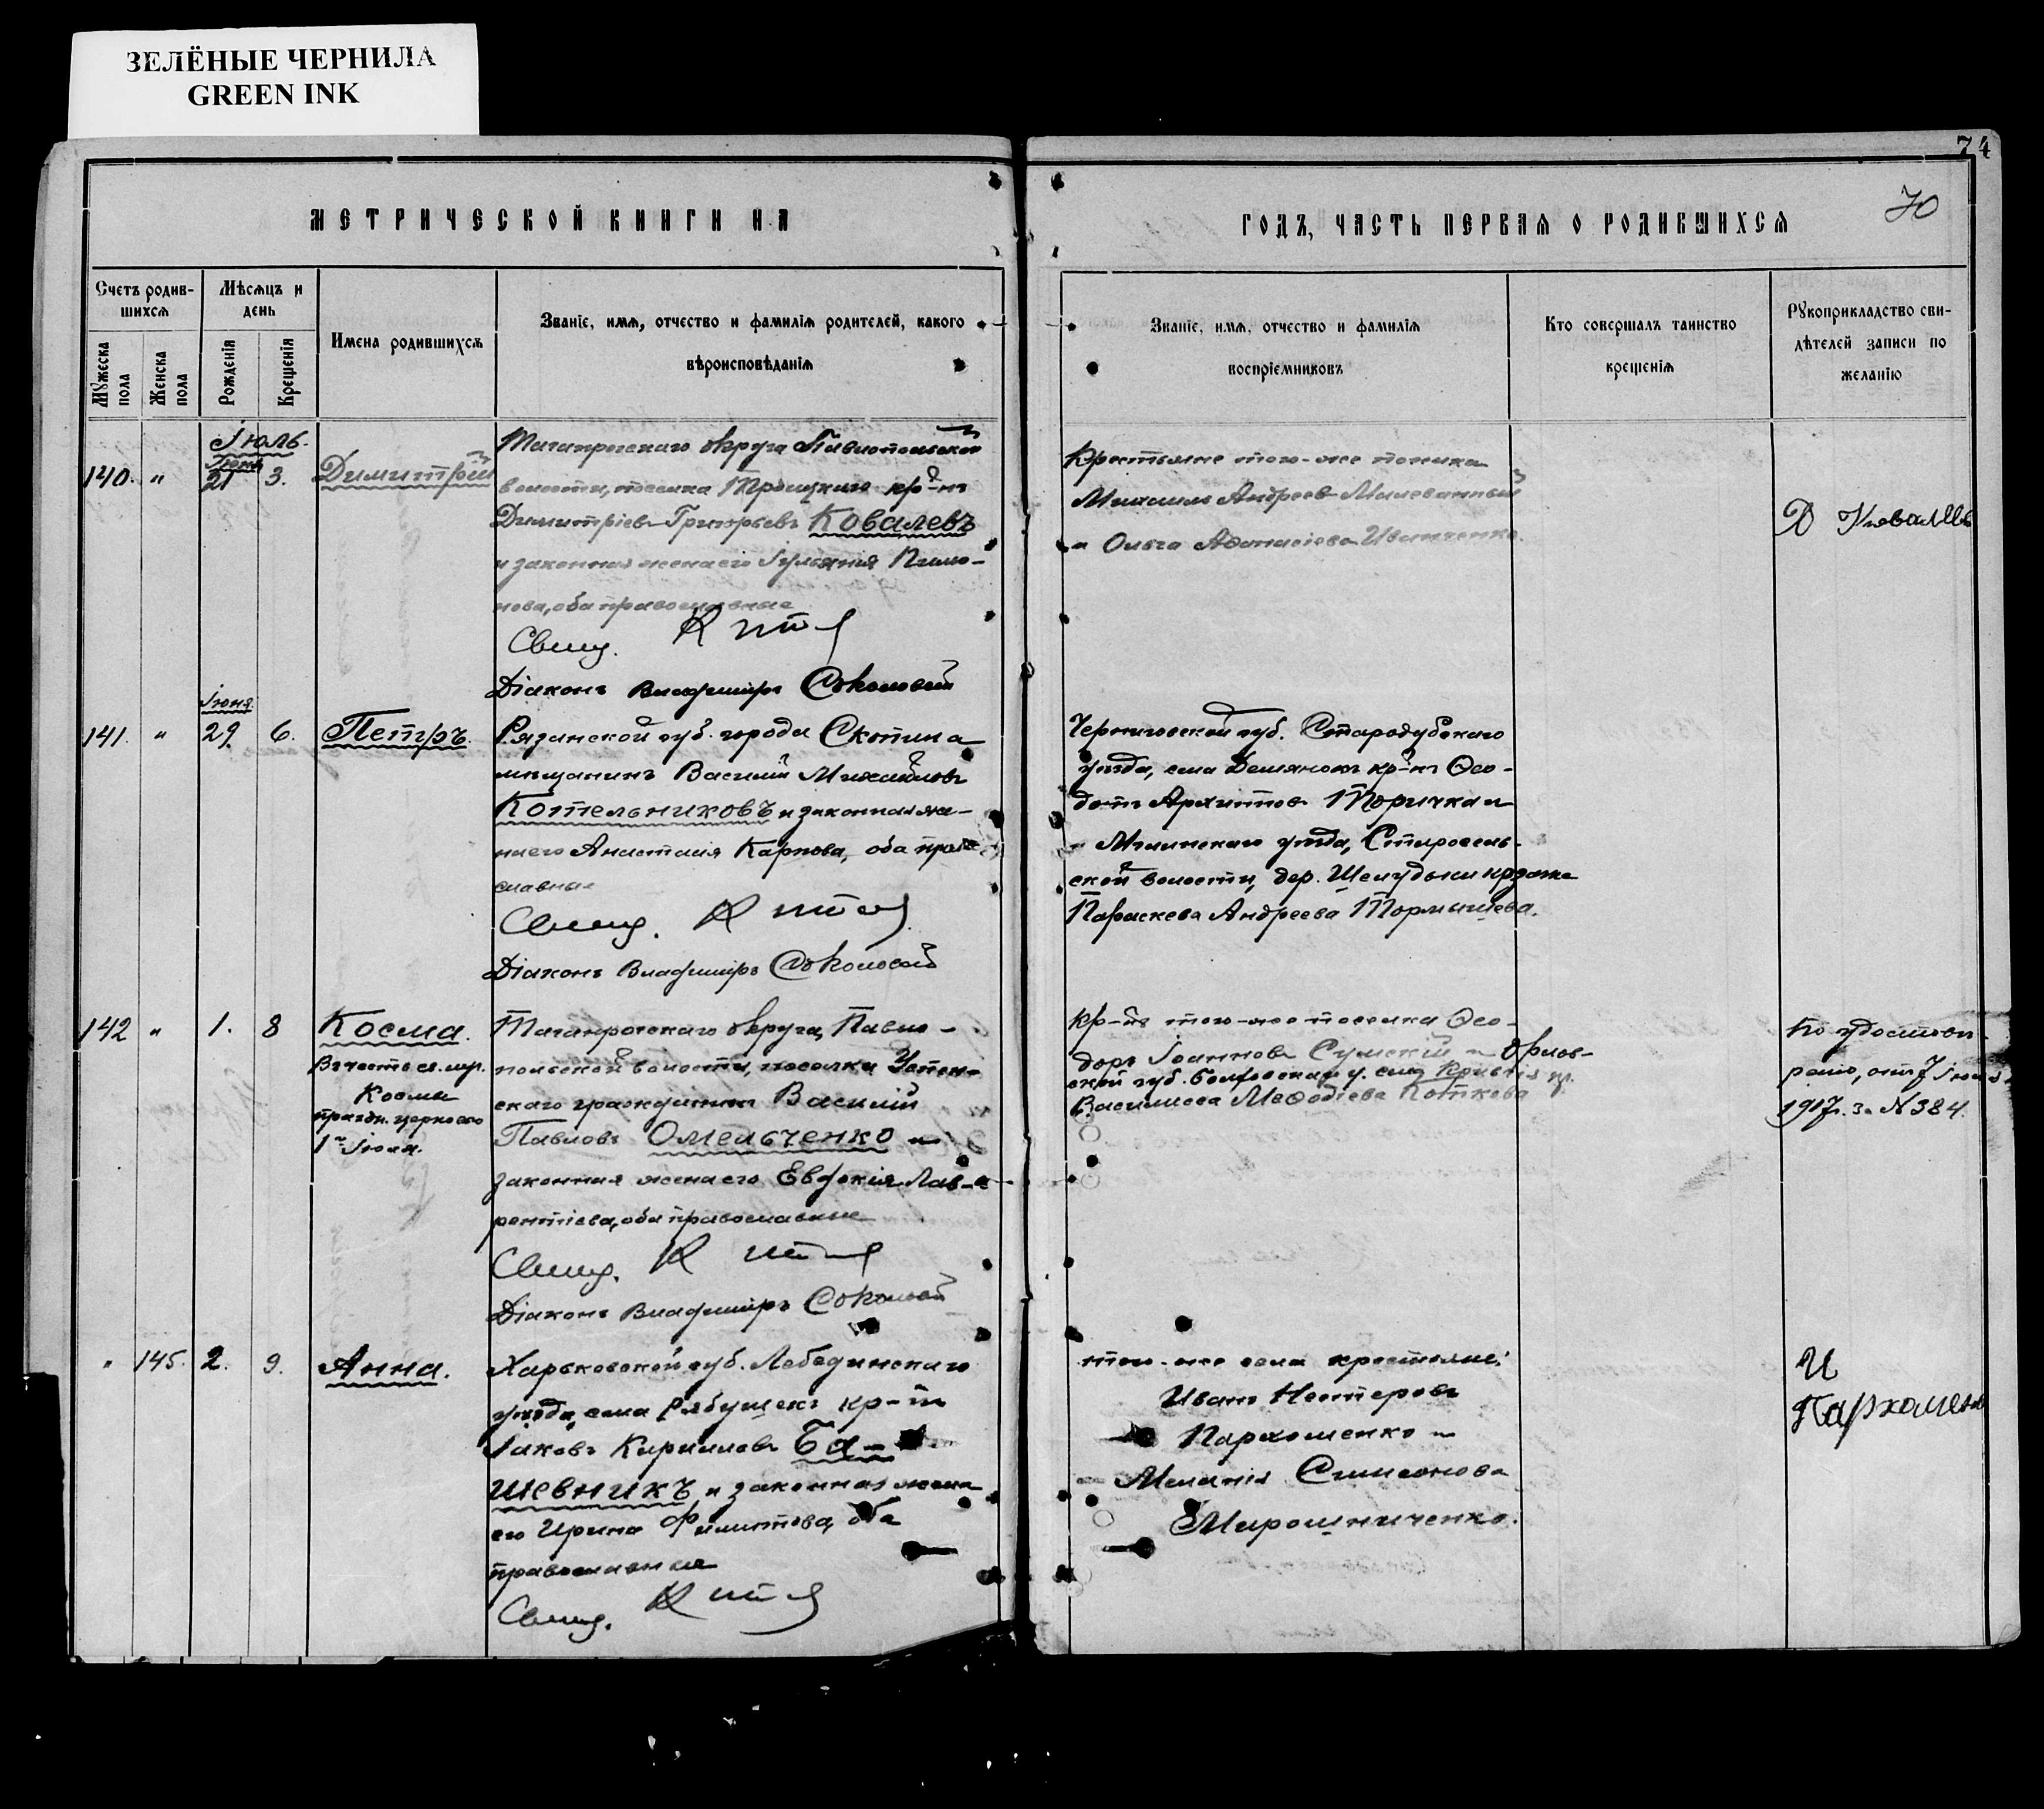 ЗЕЛЁНЫЕ ЧЕРНИЛА
GREEN INK
74
70
МЕТРИЧЕСКОЙ КНИГИ НА
ГОДЪ, ЧАСТЬ ПЕРВАЯ О РОДИВШИХСЯ
Счетъ родив-
шихся
Мужеска
пола
Женска
пола
Мѣсяцъ и
день
Рожденія
Крещенія
Имена родившихся
Званіе, имя, отчество и фамилія родителей, какого
вѣроисповѣданія
Званіе, имя, отчество и фамилія
воспріемниковъ
Кто совершалъ таинство
крещенія
Рукоприкладство сви-
дѣтелей записи по
желанію
Іюль.
Іюня
140. " 21 3. Димитрій
Таганрогскаго округа
волости, поселка Троицкаго кр-нъ
Димитріевъ Григорьевъ Ковалевъ
и законная жена его
нова, оба православные
Свящ.
Діаконъ Владиміръ Соколовъ
Крестьяне того-же поселка
Михаилъ Андреевъ Милеванный
и Ольга Аѳанасіева Иванченко.
Д Ковалевъ
Іюня
141. " 29. 6. Петръ.
Рязанской губ. города Скопина
мѣщанинъ Василій Михайловъ
Котельниковъ и законная же-
на его Анастасія Карпова, оба право
славные
Свящ.
Діаконъ Владиміръ
Черниговской губ. Стародубскаго
уѣзда, села Демянокъ кр-нъ Ѳео-
дотъ Архиповъ Торичка и
Мглинскаго уѣзда, Старосель-
ской волости, дер. Шелудьки
Параскева Андреева Тормышева.
142 " 1. 8 Косма.
Въ честь св. муч.
Космы
праздн. церковію
1го Іюля.
Таганрогскаго округа, Павло-
польской волости, поселка Успен-
скаго гражданинъ Василій
Павловъ Омельченко и
законная жена его Евдокія Лав-
рентіева, оба православные
Свящ.
Діаконъ Владиміръ
Кр-не того-же поселка Ѳео-
доръ Іоанновъ Сумскій и Орлов-
ской губ. Болховскаго у. села
Василиса Меѳодіева Коткова
По удостовѣ-
ренію, отъ 7 Іюля
1917 г. за № 384.
" 145. 2. 9. Анна.
Харьковской губ. Лебединскаго
уѣзда, села Рябушекъ кр-нъ
Іаковъ Кирилловъ Ба-
шевникъ и законная жена
его Ирина Филиппова, оба
православные
Свящ.
того-же села крестьяне:
Иванъ Нестеровъ
Пархоменко и
Меланія Симеонова
Мирошниченко.
И
Пархоменко